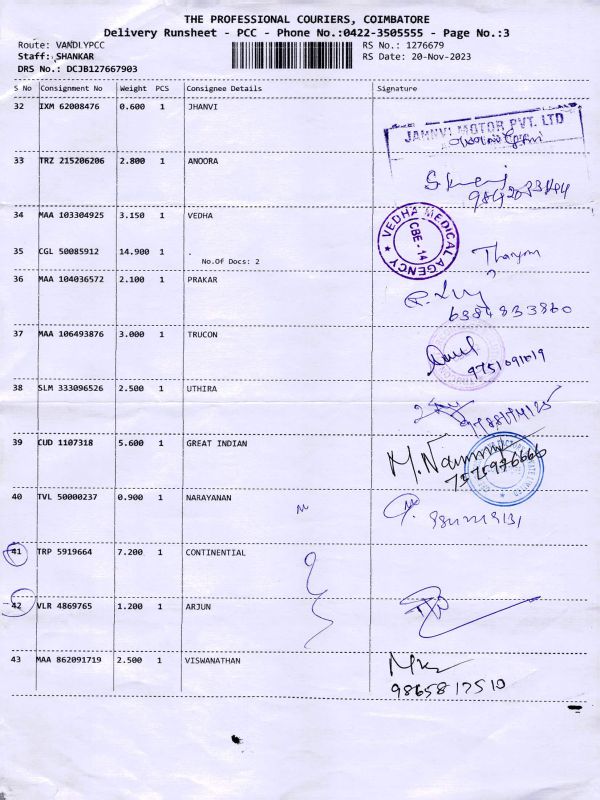 THE PROFESSIONAL COURIERS, COIMBATORE
Delivery Runsheet - PCC - Phone No.:0422-3505555 - Page No.:3
Route: VANDLYPCC RS No.: 1276679
Staff: SHANKAR RS Date: 20-Nov-2023
DRS No.: DCJB127667903
S No Consignment No Weight PCS Consignee Details Signature
32 IXM 62008476 0.600 1 JHANVI
JAMNVI MOTOR PVT. LTD
33 TRZ 215206206 2.800 1 ANOORA
34 MAA 103304925 3.150 1 VEDHA
VEDHA MEDICAL AGENCY
CBE - 14
35 CGL 50085912 14.900 1 .
No.Of Docs: 2
36 MAA 104036572 2.100 1 PRAKAR
6384833860
37 MAA 106493876 3.000 1 TRUCON
9751091619
38 SLM 333096526 2.500 1 UTHIRA
39 CUD 1107318 5.600 1 GREAT INDIAN
40 TVL 50000237 0.900 1 NARAYANAN
41 TRP 5919664 7.200 1 CONTINENTIAL
42 VLR 4869765 1.200 1 ARJUN
43 MAA 862091719 2.500 1 VISWANATHAN
9865817510